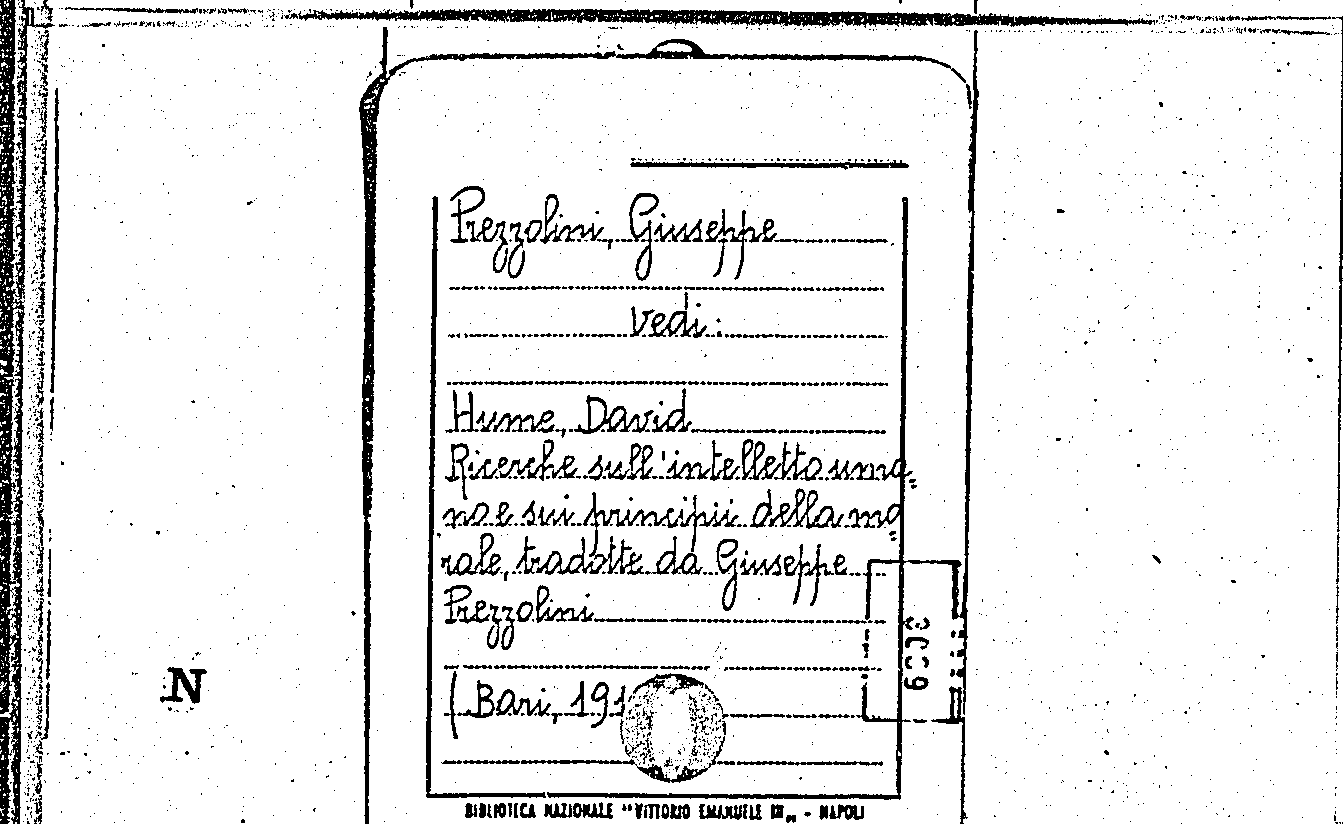 Prezzolini, Giuseppe
vedi:
Hume, David
Ricerche sull'intelletto uma„
no e sui principii della mo„
rale, tradotte da Giuseppe
Prezzolini
(Bari, 191
N
BIBLIOTECA NAZIONALE "VITTORIO EMANUELE III„ - NAPOLI